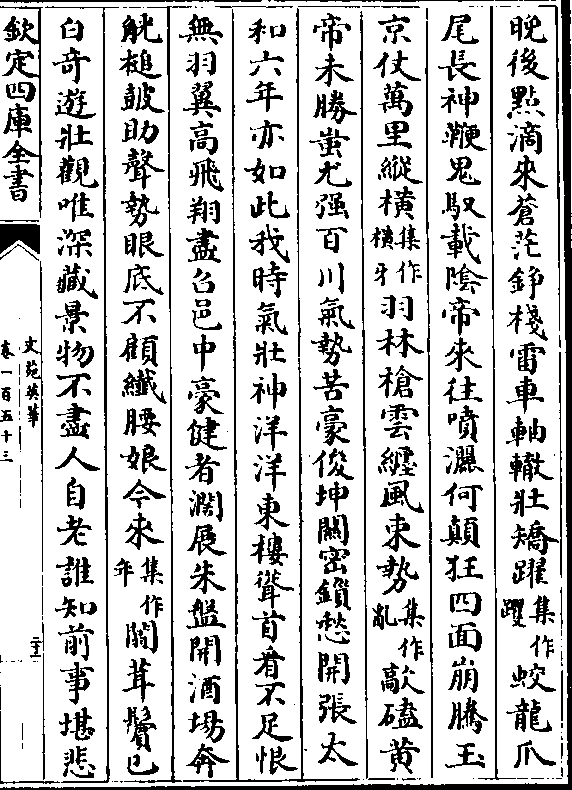 晚後點滴來蒼茫錚棧雷車軸轍壯矯躍集作躩蛟龍爪
尾長神鞭鬼馭載陰帝來往噴灑何顛狂四面崩騰玉
京仗萬里縱橫集作橫牙羽林槍雲纏風束勢集作亂敲磕黃
帝未勝蚩尤强百川氣勢苦豪俊坤關密鎖愁開張太
和六年亦如此我時氣壯神洋洋東樓聳首看不足恨
無羽翼高飛翔盡召邑中豪健者濶展朱盤開酒場奔
觥槌鼓助聲勢眼底不顧纖腰娘今來集作年闒茸鬢已
白奇遊壯觀唯深藏景物不盡人自老誰知前事堪悲
欽定四庫全書
文苑英華
卷一百五十三